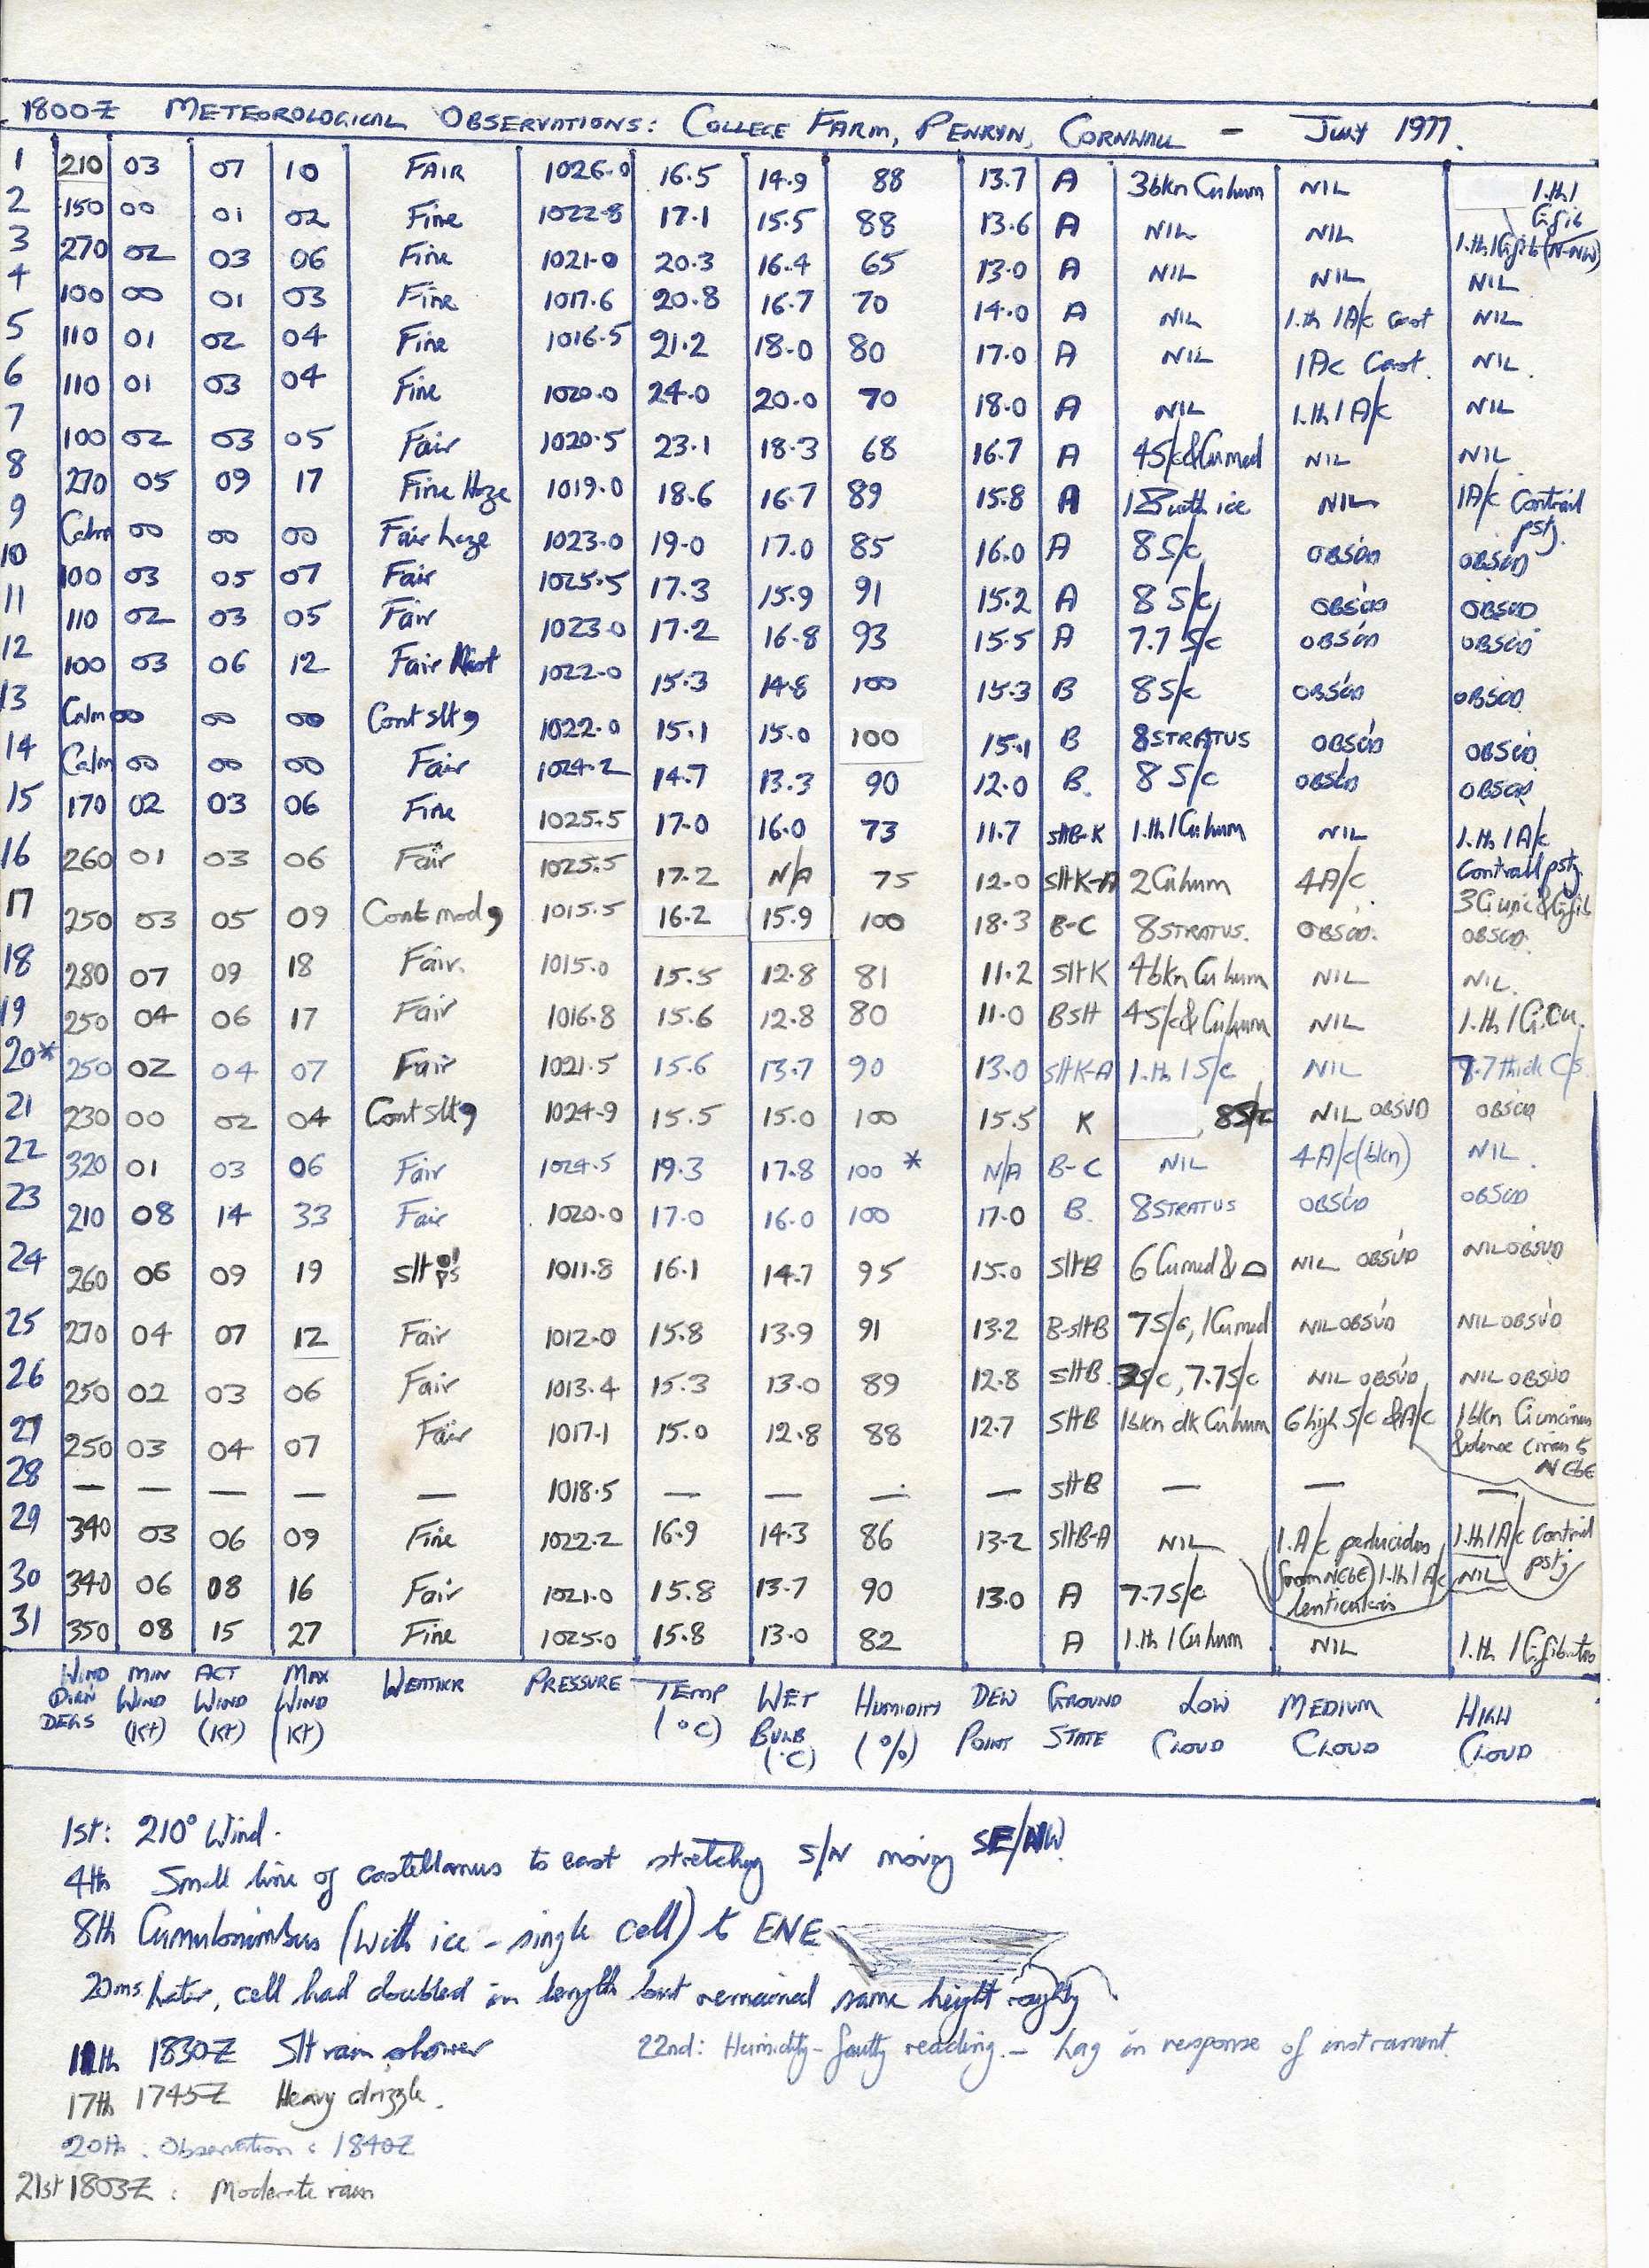 1800Z METEOROLOGICAL OBSERVATIONS: COLLEGE FARM, PENRYN, CORNWALL – JULY 1977.
1 210 03 07 10 FAIR 1026.0 16.5 14.9 88 13.7 A 3bkn Cu hum NIL 1.th 1 Ci fib
2 150 00 01 02 Fine 1022.8 17.1 15.5 88 13.6 A NIL NIL 1.th 1 Ci fib (N-NW)
3 270 02 03 06 Fine 1021.0 20.3 16.4 65 13.0 A NIL NIL NIL
4 100 00 01 03 Fine 1017.6 20.8 16.7 70 14.0 A NIL 1.th 1 A/c Cast NIL
5 110 01 02 04 Fine 1016.5 21.2 18.0 80 17.0 A NIL 1 Ac Cast. NIL.
6 110 01 03 04 Fine 1020.0 24.0 20.0 70 18.0 A NIL 1.th 1 A/c NIL
7 100 02 03 05 Fair 1020.5 23.1 18.3 68 16.7 A 4 S/c & Cu med NIL NIL
8 270 05 09 17 Fine Haze 1019.0 18.6 16.7 89 15.8 A 1 with ice NIL 1 A/c Contrail pstj.
9 Calm 00 00 00 Fair haze 1023.0 19.0 17.0 85 16.0 A 8 S/c OBS'UD OBS'UD
10 100 03 05 07 Fair 1025.5 17.3 15.9 91 15.2 A 8 S/c OBS'UD OBSUD
11 110 02 03 05 Fair 1023.0 17.2 16.8 93 15.5 A 7.7 S/c OBS'UD OBS'UD
12 100 03 06 12 Fair Mist 1022.0 15.3 14.8 100 15.3 B 8 S/c OBS'UD OBSUD
13 Calm 00 00 00 Cont slt 9 1022.0 15.1 15.0 100 15.1 B 8 STRATUS OBS'UD OBS'UD
14 Calm 00 00 00 Fair 1024.2 14.7 13.3 90 12.0 B. 8 S/c OBS'UD OBSUD
15 170 02 03 06 Fine 1025.5 17.0 16.0 73 11.7 SltB-K 1.th 1 Cu hum NIL 1.th 1 A/c Contrail pstj.
16 260 01 03 06 Fair 1025.5 17.2 N/A 75 12.0 SltK-A 2 Cu hum 4 A/c 3 Ci unc & Ci fib
17 250 03 05 09 Cont mod 9 1015.5 16.2 15.9 100 18.3 B-C 8 STRATUS. OBSUD. OBSUD.
18 280 07 09 18 Fair. 1015.0 15.5 12.8 81 11.2 SltK 4 bkn Cu hum NIL NIL.
19 250 04 06 17 Fair 1016.8 15.6 12.8 80 11.0 BSlt 4 S/c & Cu hum NIL 1.th 1 Ci Cu.
20* 250 02 04 07 Fair 1021.5 15.6 13.7 90 13.0 SltK-A 1.th 1 S/c NIL 7.7 thick C/s.
21 230 00 02 04 Cont slt 9 1024.9 15.5 15.0 100 15.5 K 8 S/c NIL OBSVD OBSUD
22 320 01 03 06 Fair 1024.5 19.3 17.8 100 * N/A B-C NIL 4 A/c (bkn) NIL.
23 210 08 14 33 Fair 1020.0 17.0 16.0 100 17.0 B. 8 STRATUS OBS'UD OBSUD
24 260 06 09 19 slt ps 1011.8 16.1 14.7 95 15.0 SltB 6 Cu med & NIL OBSVD NIL OBSVD
25 270 04 07 12 Fair 1012.0 15.8 13.9 91 13.2 B-sltB 7 S/c, 1 Cu med NIL OBS'VD NIL OBS'VD
26 250 02 03 06 Fair 1013.4 15.3 13.0 89 12.8 SltB 3 S/c, 7.7 S/c NIL OBSVD, NIL OBSVD
27 250 03 04 07 Fair 1017.1 15.0 12.8 88 12.7 SltB 1 bkn dk Cu hum 6 high S/c & A/c 1 bkn Ci uncinus & dense cirrus NEbE
28 — — — — — 1018.5 — — — — SltB — — —
29 340 03 06 09 Fine 1022.2 16.9 14.3 86 13.2 SltB-A NIL 1. A/c perlucidas (from NEbE) 1.th 1 A/c Contrail pstj
30 340 06 08 16 Fair 1021.0 15.8 13.7 90 13.0 A 7.7 S/c 1.th 1 A/c lenticularis NIL
31 350 08 15 27 Fine 1025.0 15.8 13.0 82 A 1.th 1 Cu hum NIL 1.th 1 Ci fibratus
WIND DIRN DEGS MIN WIND (Kt) ACT WIND (Kt) MAX WIND (Kt) WEATHER PRESSURE TEMP (°C) WET BULB (°C) HUMIDITY (%) DEW POINT GROUND STATE LOW CLOUD MEDIUM CLOUD HIGH CLOUD
1st: 210° Wind.
4th Small line of castellanus to east stretching S/N moving SE/NW
8th Cumulonimbus (with ice – single cell) to ENE
20ms later, cell had doubled in length but remained same height roughly.
11th 1830Z Slt rain shower
22nd: Humidity – faulty reading. – Lag in response of instrument.
17th 1745Z Heavy drizzle.
20th. Observation: 1840Z
21st 1803Z: Moderate rain